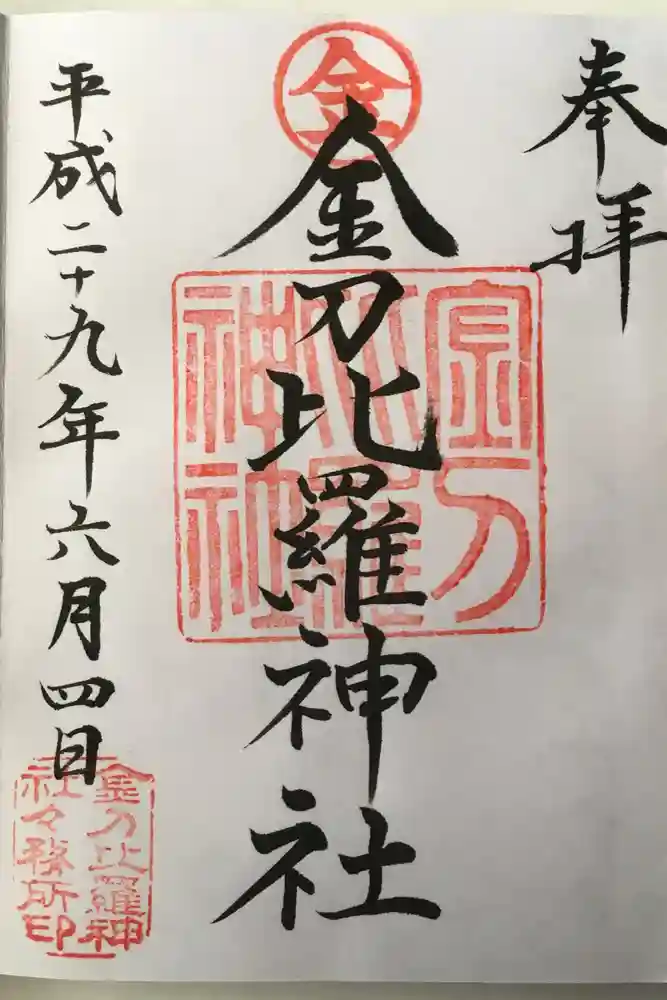 奉拝
金
金刀比羅神社
金刀
比羅
神社
平成二十九年六月四日
金刀比羅神
社々務所印